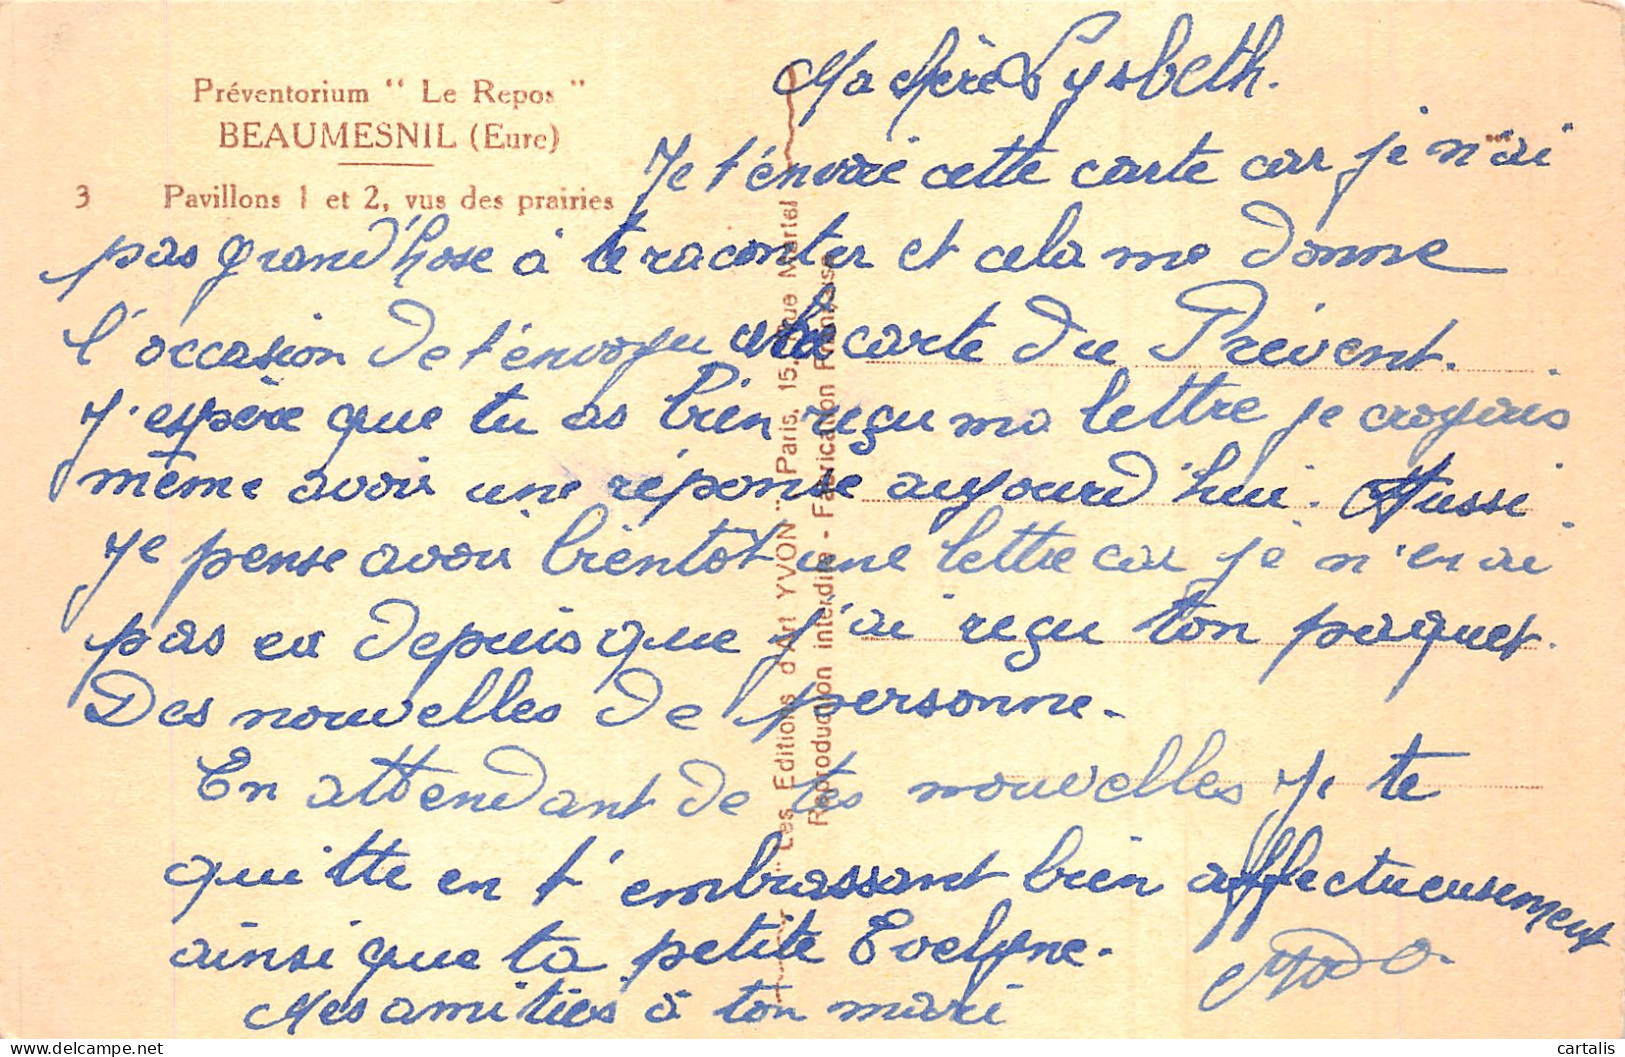 Préventorium " Le Repos "
BEAUMESNIL (Eure)
3 Pavillons 1 et 2, vus des prairies
" Les Editions d'Art YVON " Paris, 15, Rue Martel
Reproduction interdite - Fabrication Française
Ma chère Lysbeth.
Je t'envoie cette carte car je n'ai
pas grand'hose à te raconter et cela me donne
l'occasion de t'envoyer carte du Prévent.
J'espère que tu as bien reçu ma lettre je croyais
même avoir une réponse aujourd'hui. Aussi
je pense avoir bientôt une lettre car je n'en ai
pas eu depuis que j'ai reçu ton paquet.
Des nouvelles de personne.
En attendant de tes nouvelles je te
quitte en t'embrassant bien affectueusement
ainsi que ta petite Evelyne.
Mado.
Mes amitiés à ton mari
cartalis